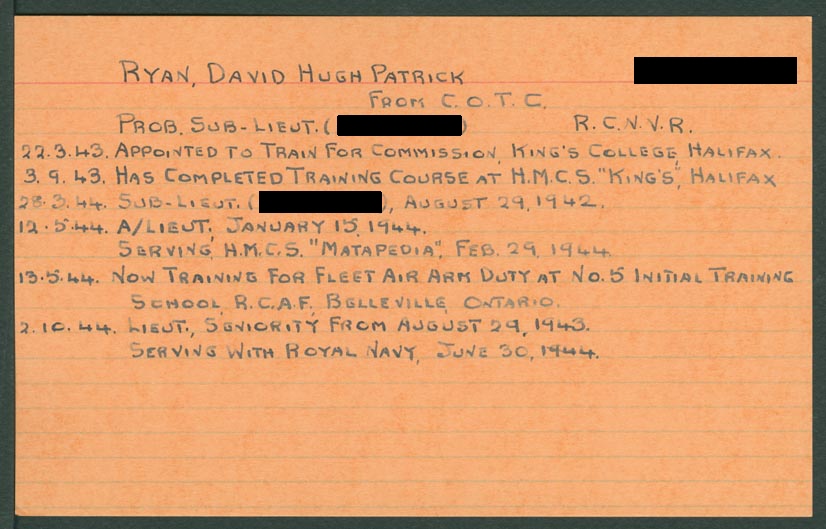 RYAN, DAVID HUGH PATRICK
FROM C.O.T.C.
PROB. SUB-LIEUT. ( ) R.C.N.V.R.
22.3.43. APPOINTED TO TRAIN FOR COMMISSION, KING'S COLLEGE, HALIFAX.
3.9.43. HAS COMPLETED TRAINING COURSE AT H.M.C.S. "KING'S", HALIFAX
28.3.44. SUB-LIEUT. ( ), AUGUST 29, 1942.
12.5.44. A/LIEUT, JANUARY 15, 1944.
SERVING, H.M.C.S. "MATAPEDIA", FEB. 29, 1944.
13.5.44. NOW TRAINING FOR FLEET AIR ARM DUTY AT NO. 5 INITIAL TRAINING
SCHOOL, R.C.A.F., BELLEVILLE, ONTARIO.
2.10.44. LIEUT., SENIORITY FROM AUGUST 29, 1943.
SERVING WITH ROYAL NAVY, JUNE 30, 1944.